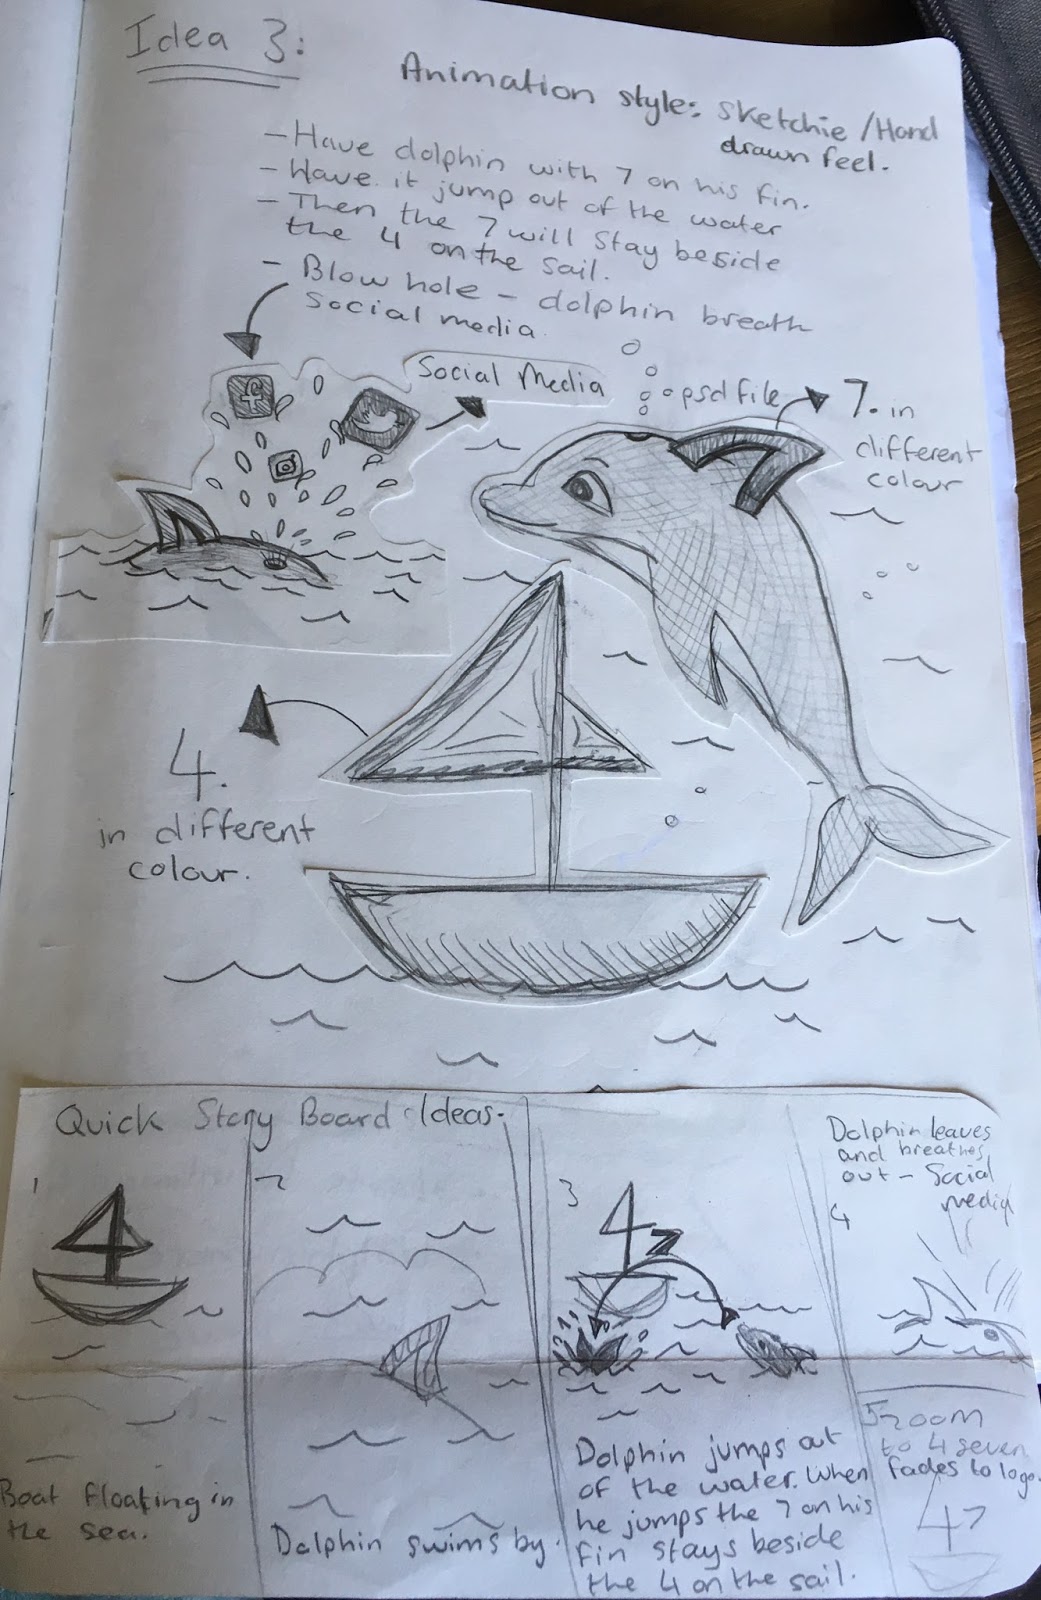 Idea 3:
Animation style: Sketchie / Hand
drawn feel.
- Have dolphin with 7 on his fin.
- Have it jump out of the water
- Then the 7 will stay beside
the 4 on the sail.
- Blow hole - dolphin breath
social media.
Social Media
psd file
7. in
different
colour
f
4.
in different
colour.
Quick Story Board Ideas.
1
Boat floating in
the sea.
2
Dolphin swims by.
3
4
7
Dolphin jumps out
of the water. When
he jumps the 7 on his
fin stays beside
the 4 on the sail.
Dolphin leaves
and breathes
out - Social
media
4
5 zoom
to 4 seven
fades to logo.
47